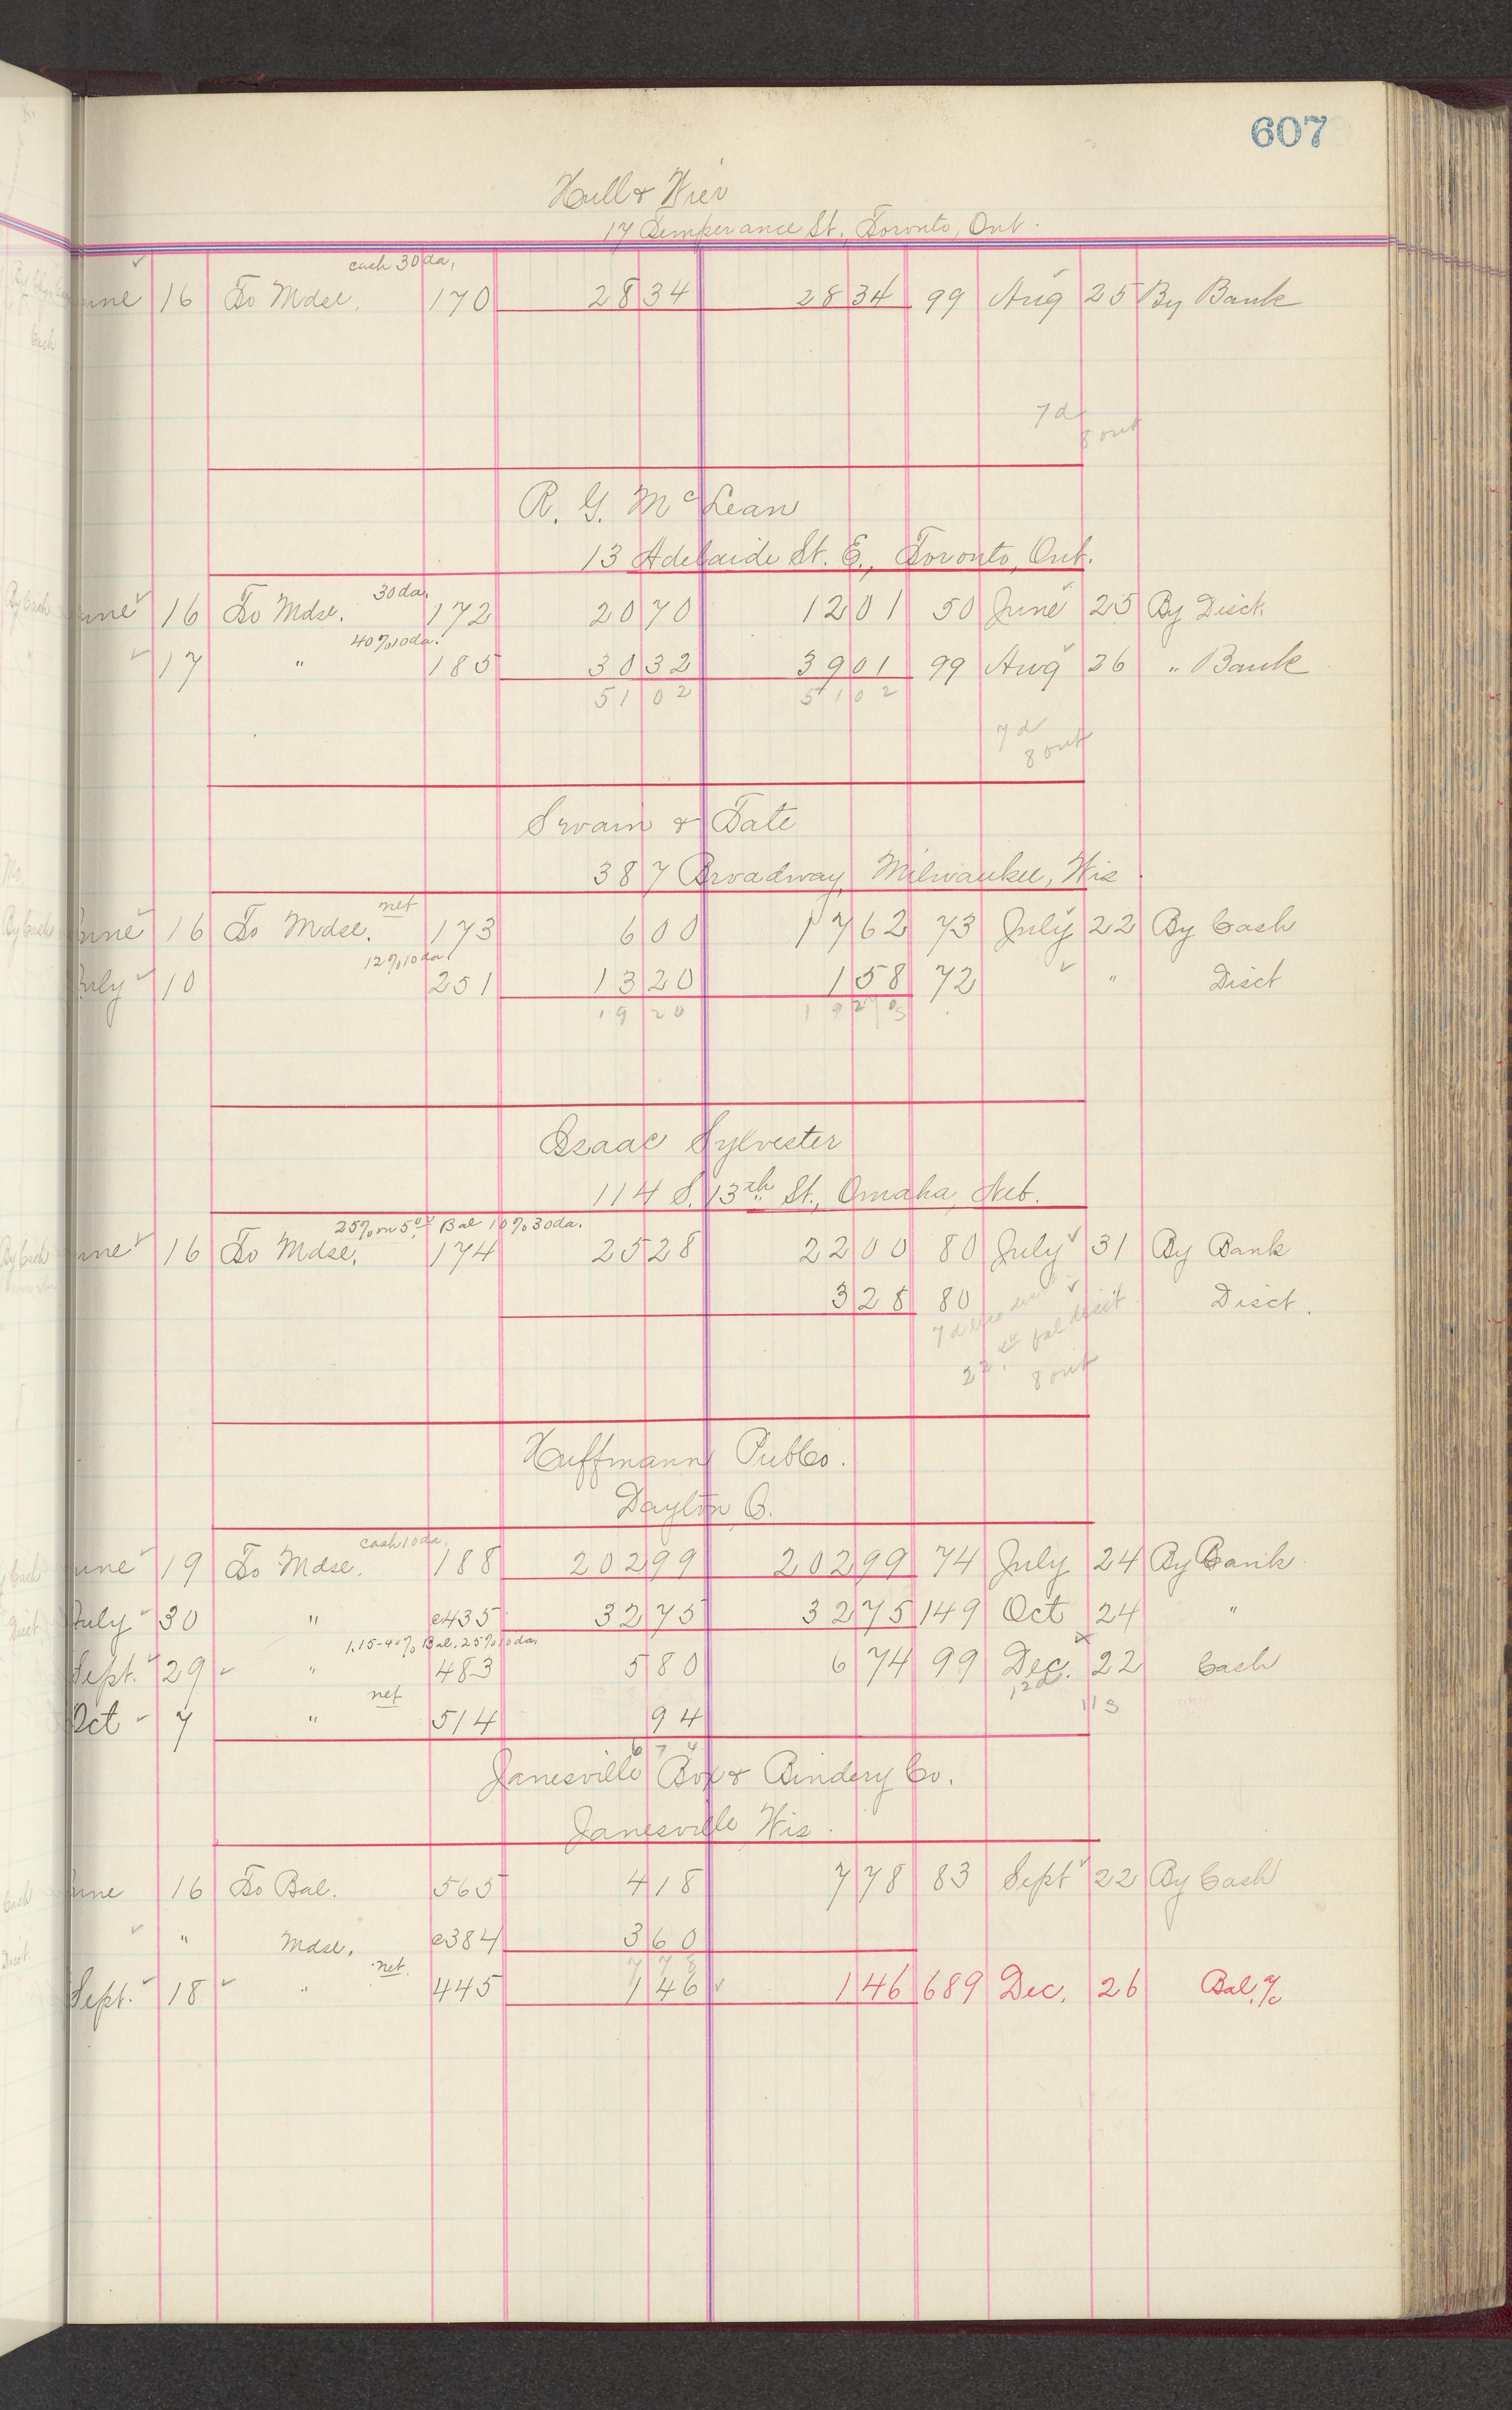 607
Hull & Wier
17 Temperance St., Toronto, Ont.
cash 30 da.
June 16 To Mdse. 170 28 34 28 34 99 Aug 25 By Bank
7 d
8 out
R. G. McLean
13 Adelaide St. E., Toronto, Ont.
30 da.
June 16 To Mdse. 172 20 70 12 01 50 June 25 By Disct.
40% 10 da.
17 " 185 30 32 39 01 99 Aug 26 " Bank
51 02 51 02
7 d
8 out
Swain & Tate
387 Broadway, Milwaukee, Wis
net
June 16 To Mdse. 173 6 00 17 62 73 July 22 By Cash
12% 10 da.
July 10 251 13 20 1 58 72 " Disct
19 20
Isaac Sylvester
114 S. 13th St., Omaha, Neb.
25% on 5.00 Bal 10% 30 da.
June 16 To Mdse. 174 25 28 22 00 80 July 31 By Bank
3 28 80 " Disct.
8 out
Huffmann Pub Co.
Dayton O.
cash 10 da.
June 19 To Mdse. 188 202 99 202 99 74 July 24 By Bank
July 30 " e435 32 75 32 75 149 Oct 24 "
1.15-40% Bal. 25% 10 da.
Sept. 29 " 483 5 80 6 74 99 Dec. 22 Cash
12d
11s
net
Oct 7 " 514 94
6 74
Janesville Box & Bindery Co.
Janesville Wis.
June 16 To Bal. 565 4 18 7 78 83 Sept 22 By Cash
" Mdse. e384 3 60
7 78
net
Sept. 18 " 445 1 46 1 46 689 Dec. 26 Bal. a/c